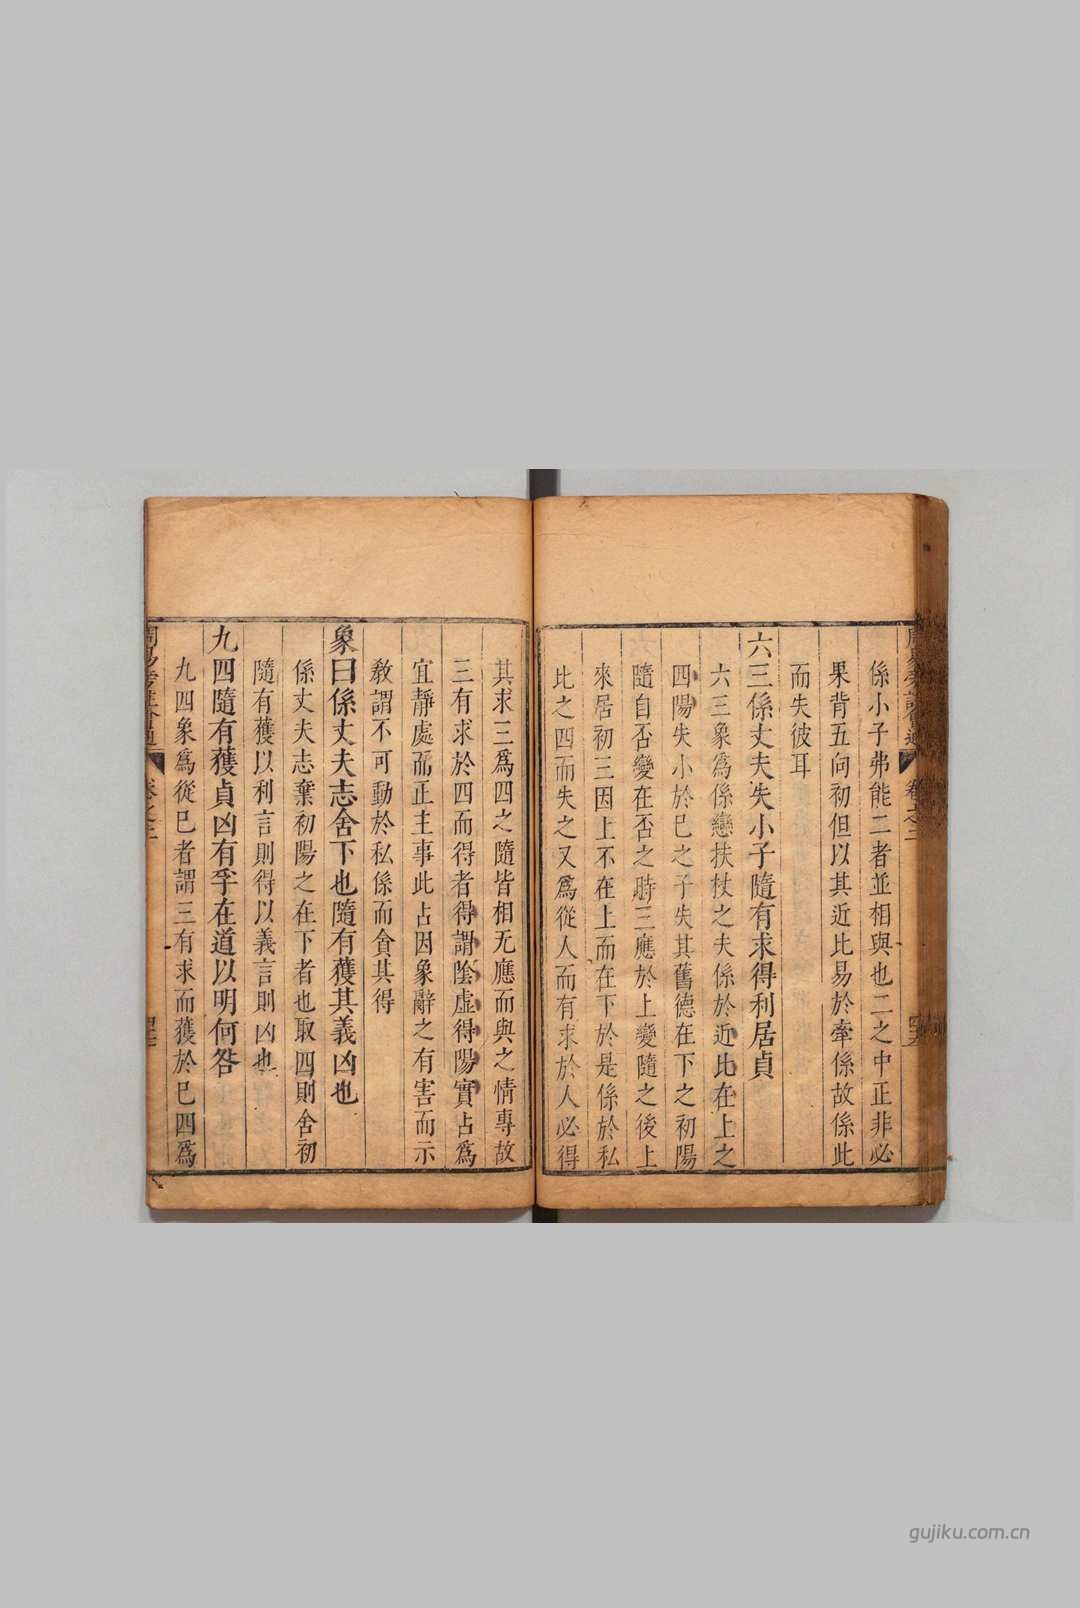 係小子弗能二者並相與也二之中正非必
果背五向初但以其近比易於牽係故係此
而失彼耳
六三係丈夫失小子隨有求得利居貞
六三象為係戀扶杖之夫係於近比在上之
四陽失小於已之子失其舊德在下之初陽
隨自否變在否之時三應於上變隨之後上
來居初三因上不在上而在下於是係於私
比之四而失之又為從人而有求於人必得
其求三為四之隨皆相无應而與之情專故
三有求於四而得者得謂陰虛得陽實占為
宜靜處而正主事此占因象辭之有害而示
教謂不可動於私係而貪其得
象曰係丈夫志舍下也隨有獲其義凶也
係丈夫志棄初陽之在下者也取四則舍初
隨有獲以利言則得以義言則凶也
九四隨有獲貞凶有孚在道以明何咎
九四象為從已者謂三有求而獲於已四為
卷之二
gujiku.com.cn